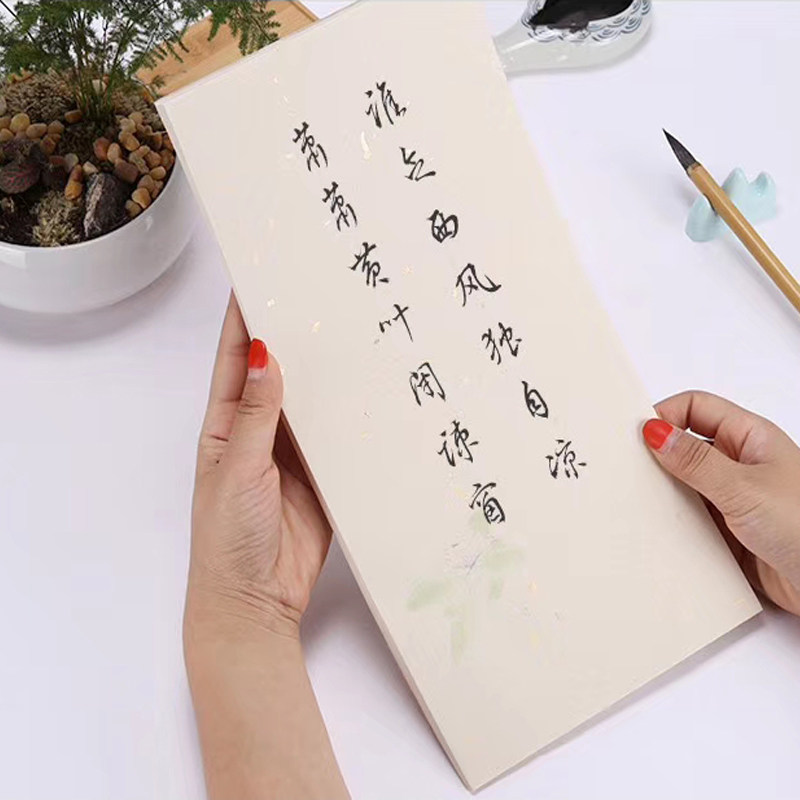 谁念西风独自凉
萧萧黄叶闭疏窗